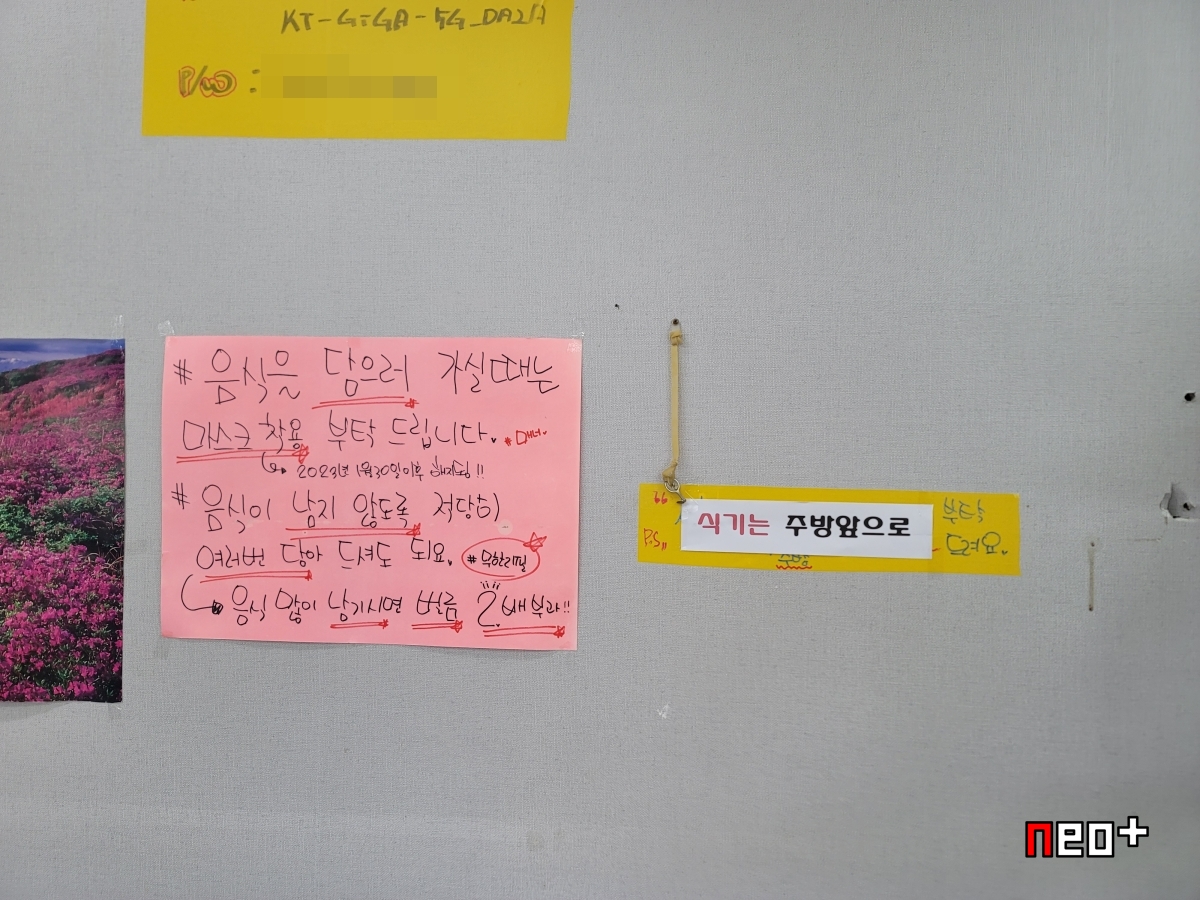 KT-GiGA-5G_DA21A
P/W :
# 음식을 담으러 가실때는
마스크 착용 부탁 드립니다. * 매너
2023년 1월30일이후 해지됨!!
# 음식이 남지 않도록 적당히
여러번 담아 드셔도 되요. #무한리필
음식 많이 남기시면 벌금 2배부과!!
식기는 주방앞으로
부탁
P.S" 주방 드려요.
neo+